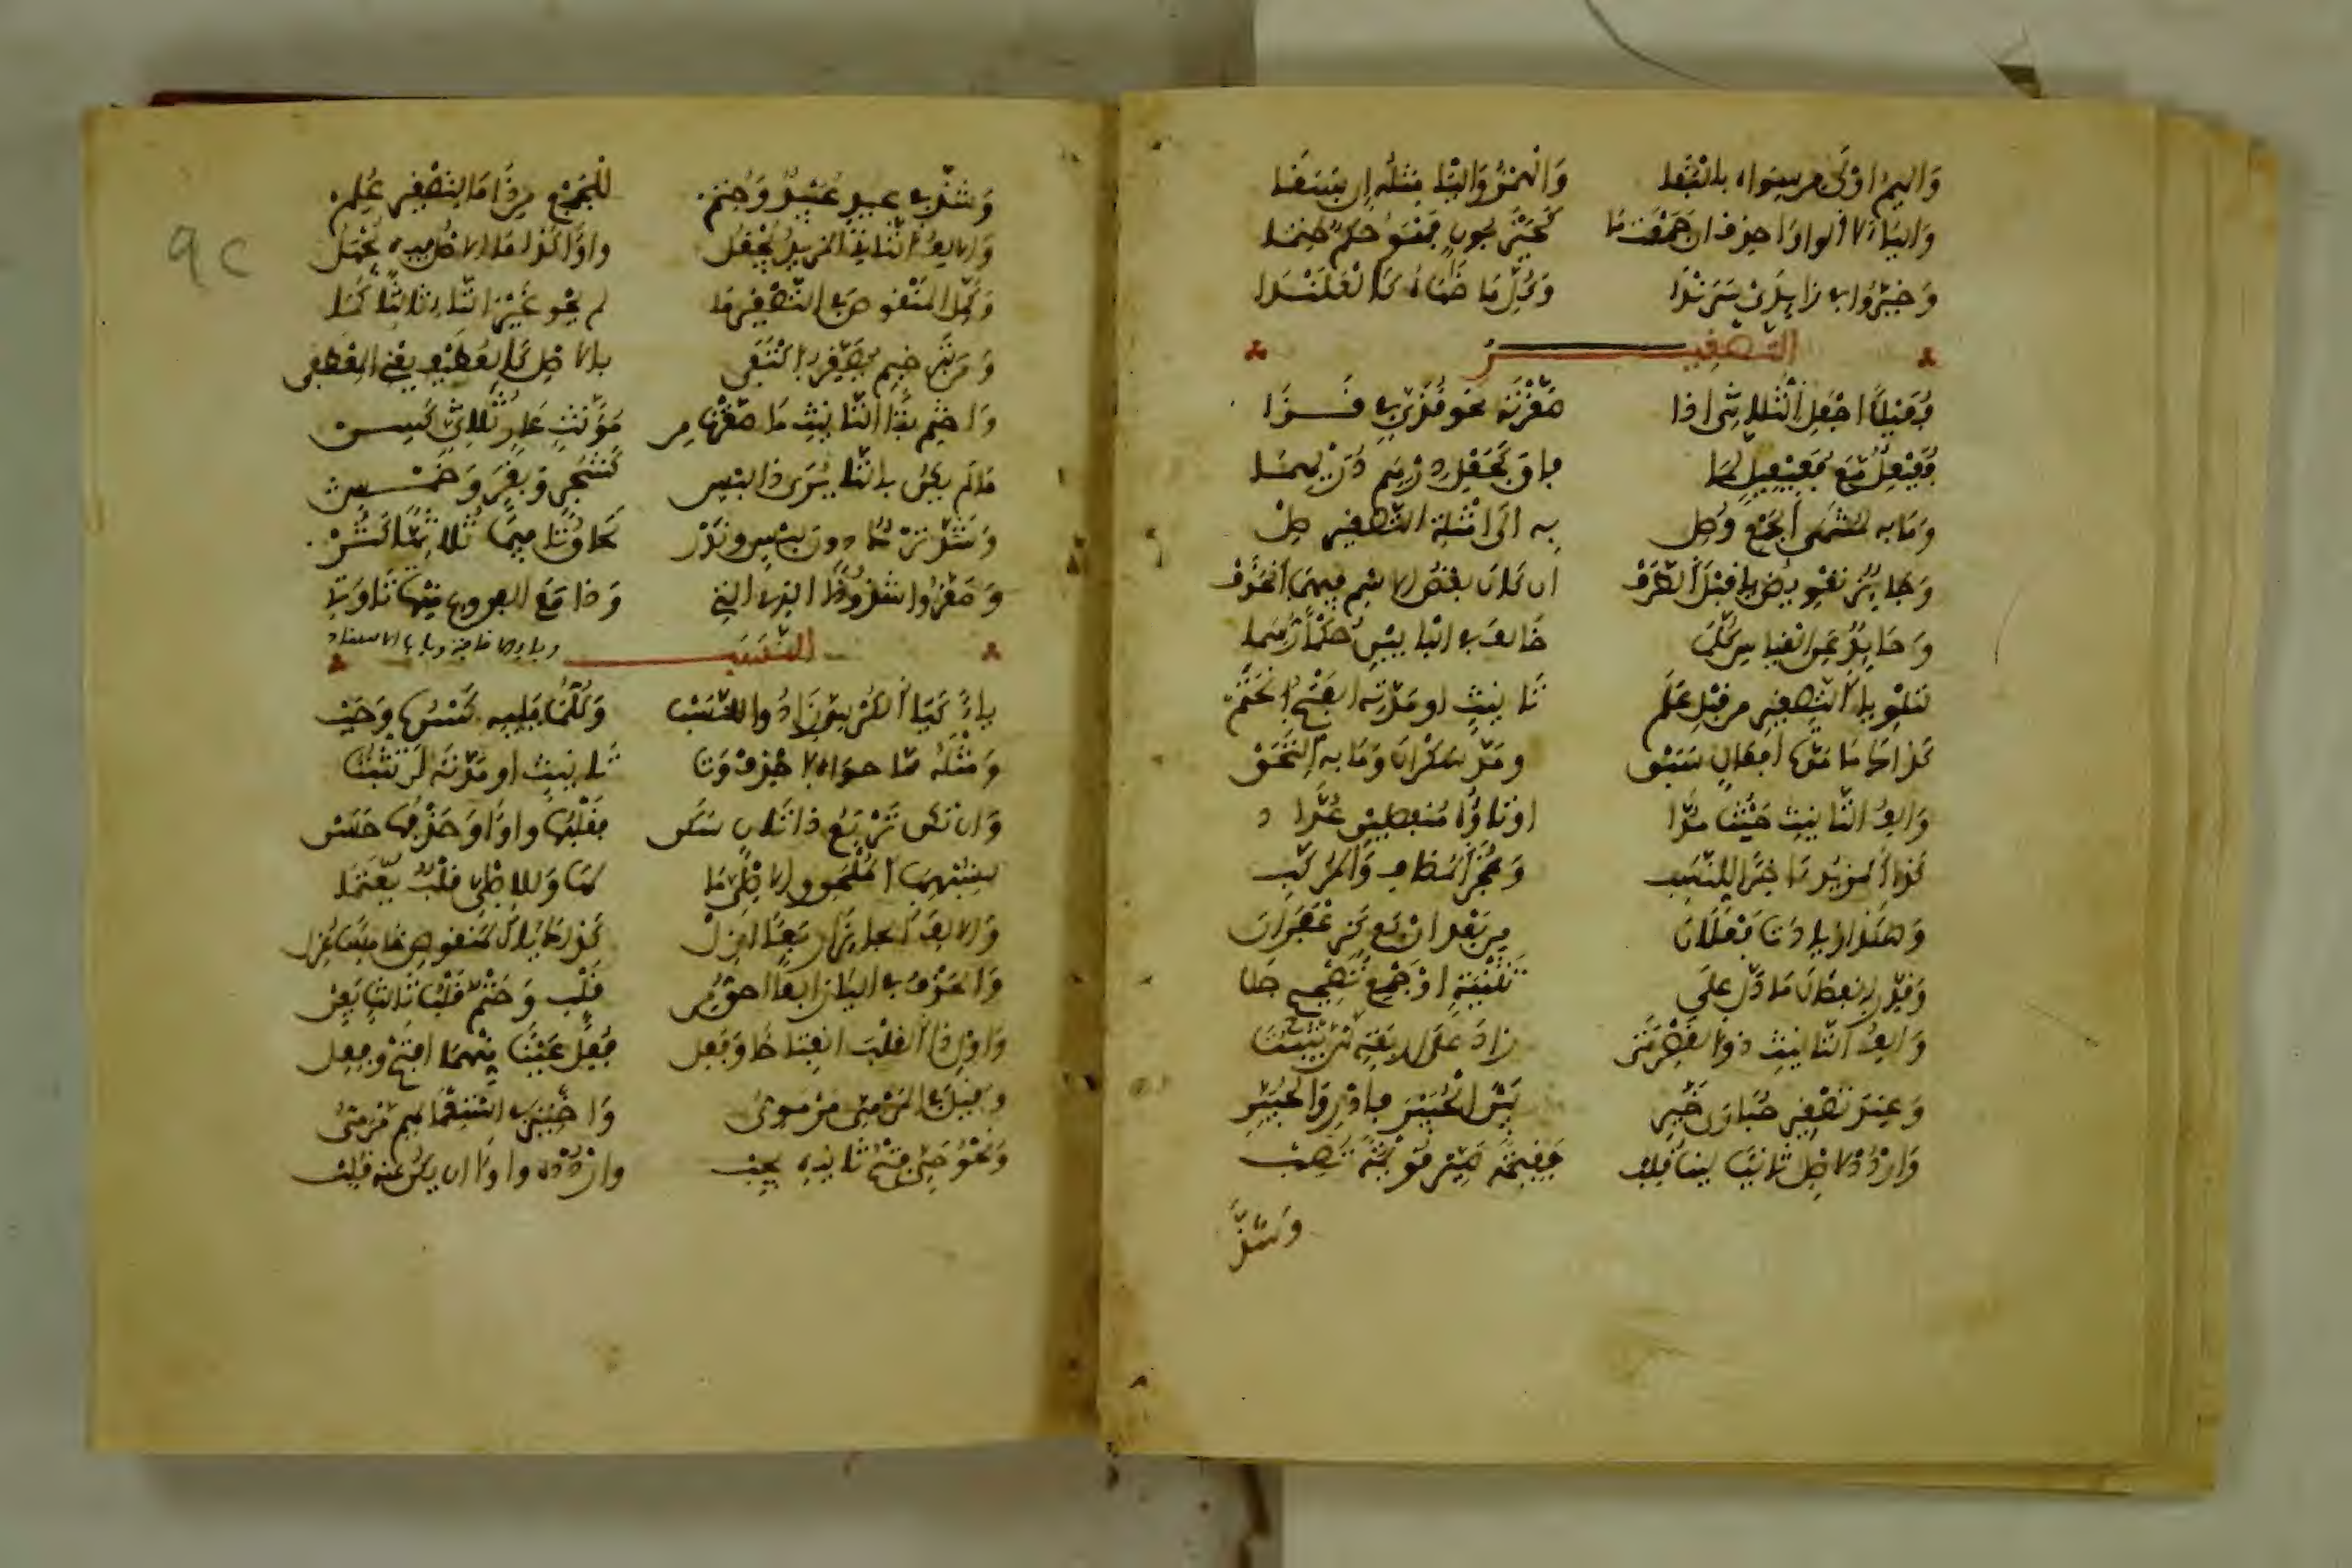 والميم اولى من سواه بالبقا والهمز واليا مثله ان سبقا
والياء لا الواو احذف ان جمعت ما كحيزبون فهو حكم حتما
وخيروا في زايدي سرندا وكل ما ضاهاه كالعلندا
التصغير
فعيلا اجعل الثلاثي اذا صغرته نحو قذي في قذا
فعيعل مع فعيعيل لما فاق كجعل درهم دريهما
وما به لمنتهى الجمع وصل به الى امثلة التصغير صل
وجايز تعويض يا قبل الطرف ان كان بعض الاسم فيهما انحذف
وحايد عن القياس كلما خالف في البابين حكما رسما
لتلو يا التصغير من قبل علم تانيث او مدته الفتح انحتم
كذاك ما مدة افعال سبق ومد سكران وما به التحق
والف التانيث حيث مدا وتاؤه منفصلين عدا
كذا المزيد ءاخرا للنسب وعجز المضاف والمركب
وهكذا زيادتا فعلان من بعد اربع كزعفران
وقدر انفصال ما دل على تثنية او جمع تصحيح جلا
والف التانيث ذو القصر متى زاد على اربعة لن يثبتا
وعند تصغير حبارى خير بين الحبيرى فادر والحبير
واردد لاصل ثانيا لينا قلب فقيمة صير قويمة تصب
وشذ
وشذ في عيد عييد وحتم للجمع من ذا ما لتصغير علم
والالف الثاني المزيد يجعل واوا كذا ما الاصل فيه يجهل
وكمل المنقوص في التصغير ما لم يحو غير التاء ثالثا كما
ومن بترخيم يصغر اكتفى بالاصل كالعطيف يعني المعطفى
واختم بتا التانيث ما صغرت من مؤنث عار ثلاثي كسن
ما لم يكن بالتا يرى ذا لبس كشجر وبقر وخمس
وشذ ترك دون لبس وندر لحاق تا فيما ثلاثيا كثر
وصغروا شذوذا الذي التي وذا مع الفروع منها تا وتي
النسب
ياء كيا الكرسي زادوا للنسب وكلما يليه كسره وجب
ومثله مما حواه احذف وتا تانيث او مدته لا تثبتا
وان تكن تربع ذا ثان سكن فقلبها واوا وحذفها حسن
لشبهها الملحق والاصلي ما لها وللاصلي قلب يعتما
والالف الجايز اربعا ازل كذاك يا المنقوص خامسا عزل
والحذف في اليا رابعا احق من قلب وحتم قلب ثالث يعن
واول ذا القلب انفتاحا وفعل وفعل عينهما افتح وفعل
وقيل في المرمي مرموي واختير في استعمالهم مرمي
ونحو حي فتح ثانيه يجب واردده واوا ان يكن عنه قلب